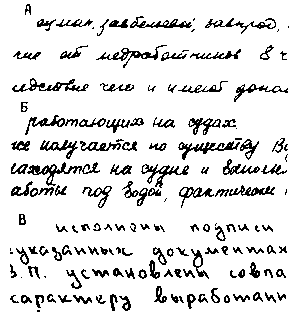 А
чие от медработников в ч
ледствие чего и имеют допол
Б
работающих на судах.
же получается по существу Ву
находятся на судне и выполн
аботы под водой, фактически
В
исполнены подписи
указанных документах
В.П. установлены совпа
характеру выработанн